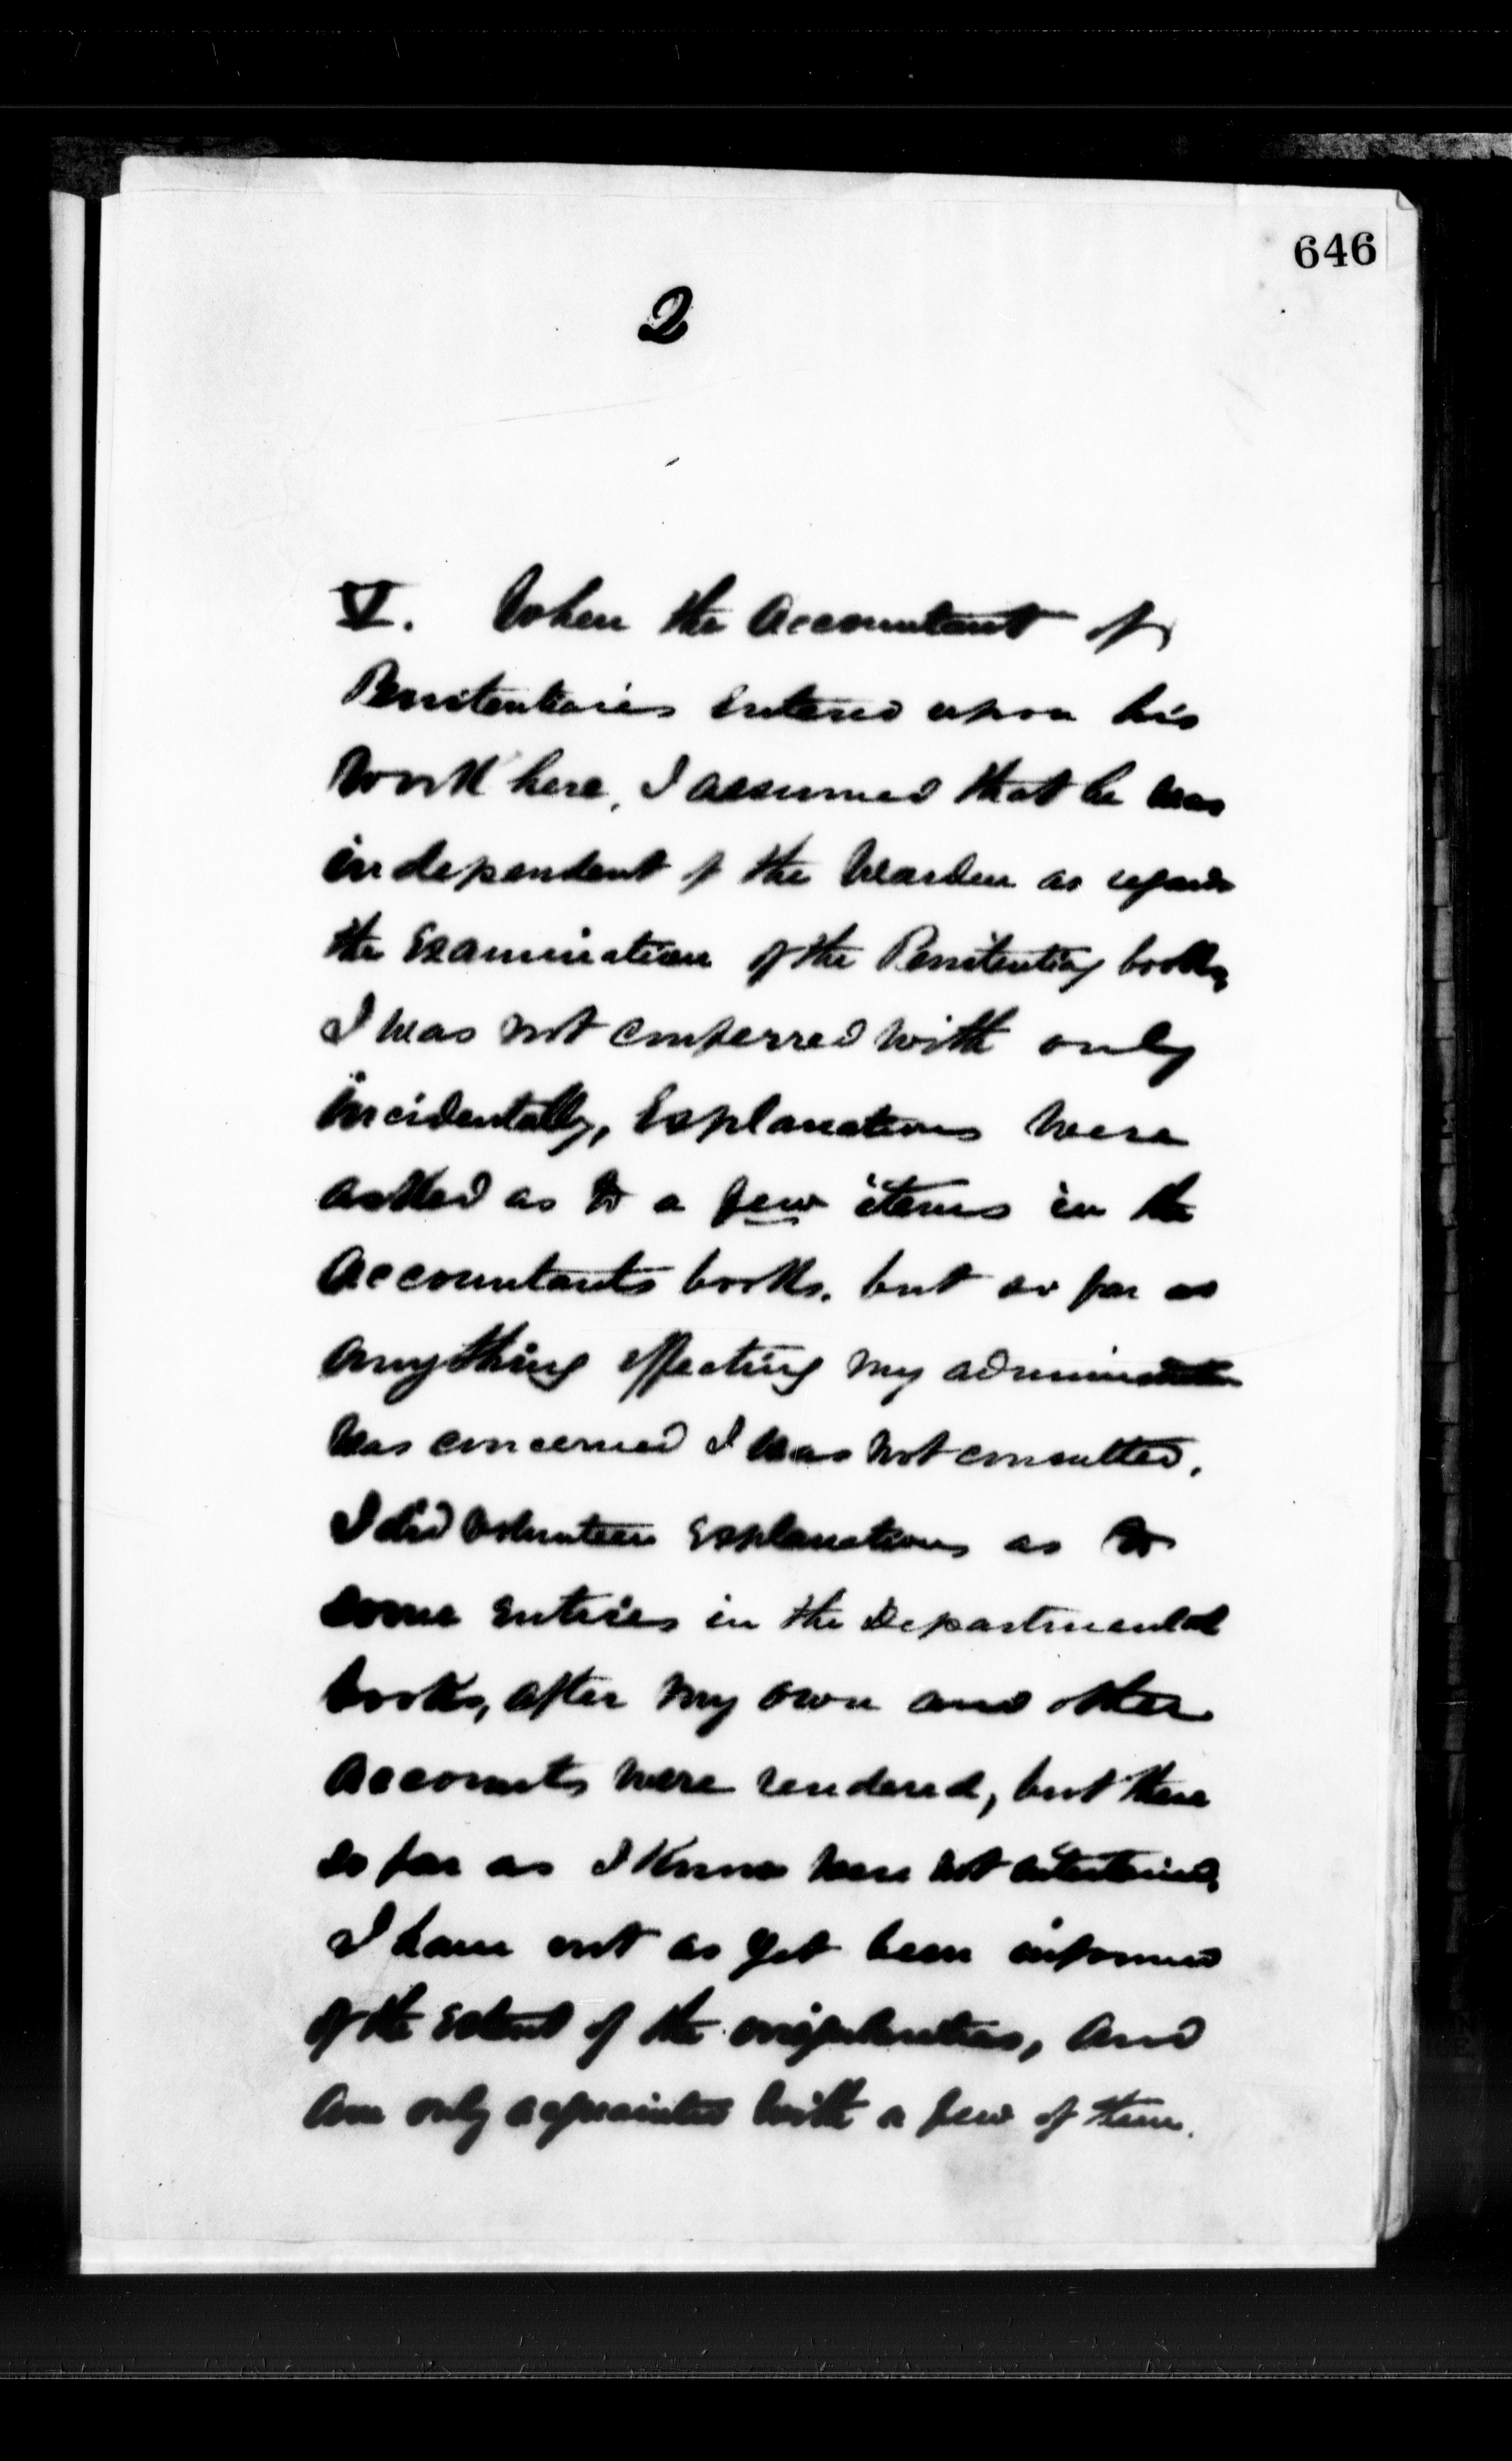 646
2
V. When the Accountant of
Penitentiaries entered upon his
work here, I assumed that he was
independent of the Warden as regards
the Examination of the Penitentiary books,
I was not conferred with only
incidentally, Explanations were
asked as to a few items in the
Accountants books, but so far as
anything effecting my administration
was concerned I was not consulted.
I did volunteer explanations as to
some entries in the Departmental
books, after my own and other
accounts were rendered, but these
so far as I know were not entertained,
I have not as yet been informed
of the extent of the irregularities, and
am only acquainted with a few of them.